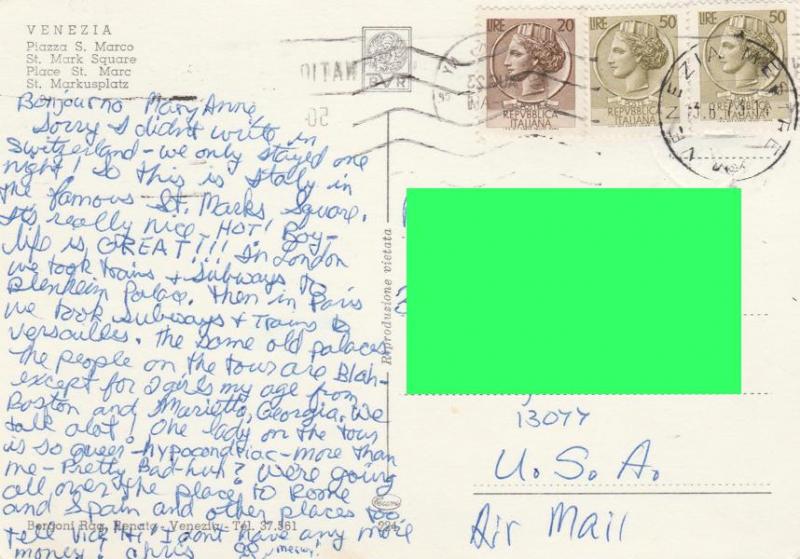 VENEZIA
Piazza S. Marco
St. Mark Square
Place St. Marc
St. Markusplatz
Bonjourno Mary Anne
Sorry I didn't write in
Switzerland - we only stayed one
night! So this is Italy in
the famous St. Marks Square.
It's really nice HOT! Boy-
life is GREAT!!! In London
we took trains + subways to
Blenheim Palace. Then in Paris
we took subways + trains to
Versailles. The same old palaces
The people on the tour are Blah-
except for 2 girls my age from
Boston and Marietta, Georgia. We
talk alot! One lady on the tour
is so queer - hypocondriac - more than
me - Pretty Bad-huh? We're going
all over the place to Rome
and Spain and other places too
tell Vick "Hi" I dont have any more
money! Chris
meow!
Borgoni Rag. Renato - Venezia - Tel. 37.361
224
Reproduzione vietata
LIRE 20
REPVBBLICA
ITALIANA
LIRE 50
REPVBBLICA
ITALIANA
LIRE 50
REPVBBLICA
ITALIANA
VENEZIA
13077
U.S.A.
Air Mail